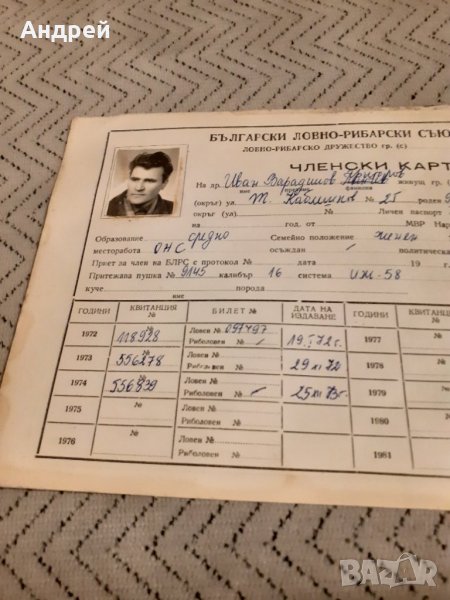 Андрей
БЪЛГАРСКИ ЛОВНО-РИБАРСКИ СЪЮ
ЛОВНО-РИБАРСКО ДРУЖЕСТВО гр. (с)
ЧЛЕНСКИ КАРТ
На др. Иван живущ гр.
име презиме фамилия
(окръг) (ул.) № 25 роден
окръг (ул) № Личен паспорт
на год. от МВР Нар
Образование средно Семейно положение женен
месторабота ОНС осъждан политическа
Приет за член на БЛРС с протокол № дата 19 г.
Притежава пушка № 9145 калибър 16 система иж-58
куче порода
име
ГОДИНИ КВИТАНЦИЯ № БИЛЕТ № ДАТА НА ИЗДАВАНЕ ГОДИНИ КВИТАНЦ
1972 № 118928 Ловен № 097497 Риболовен № 19.I.72г. 1977
1973 № 556278 Ловен № Риболовен № 29 XII 72 1978
1974 № 556839 Ловен № Риболовен № 25 XII 73г. 1979
1975 № Ловен № Риболовен № 1980
1976 № Ловен № Риболовен № 1981
BAZAR